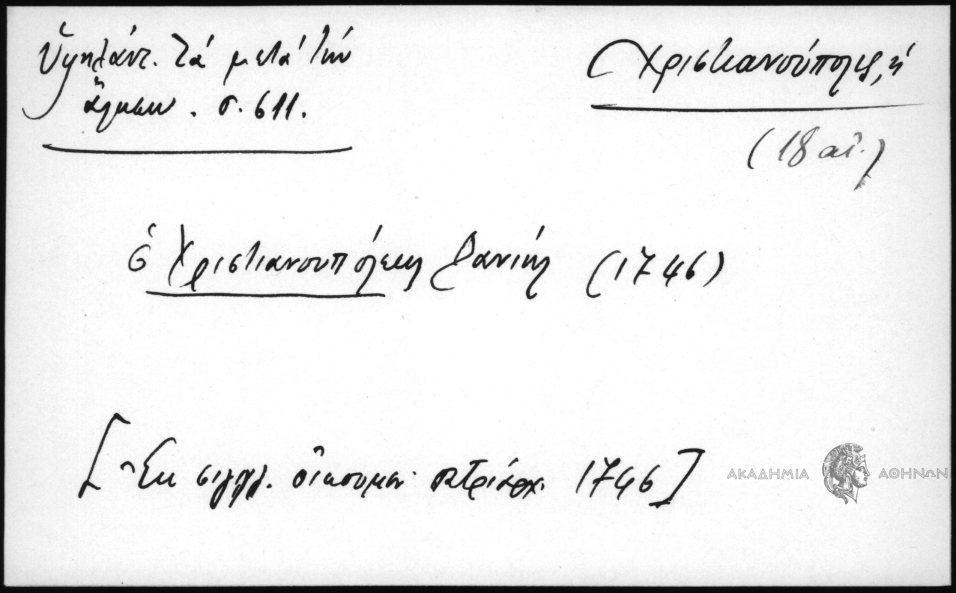 Ὑψηλάντ. Τά μετά τήν
ἅλωσιν. σ. 611.
(Χριστιανούπολις, ἡ
(18 αἰ.)
ὁ Χριστιανουπόλεως Δανιήλ (1746)
[Ἐκ σιγιλλ. οἰκουμεν. πατριάρχ. 1746]
ΑΚΑΔΗΜΙΑ ΑΘΗΝΩΝ